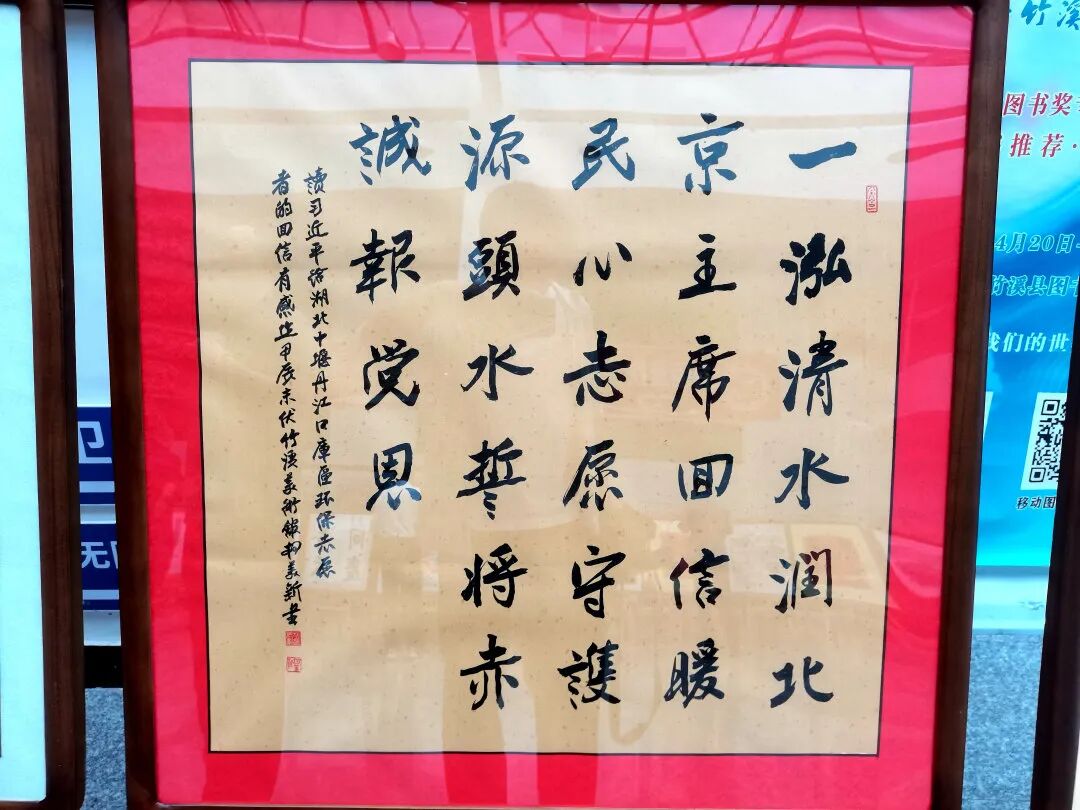 一泓清水潤北
京主席回信暖
民心志愿守護
源頭水誓将赤
誠報党恩
讀习近平给湖北十堰丹江口庫区环保志愿
者的回信有感
甲辰末伏竹溪美術馆
书
竹溪
图书奖
推荐·
4月20日
竹溪县图书
我们的世
移动图
无